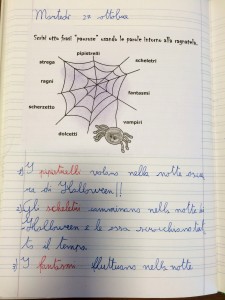 Martedì 20 ottobre
Scrivi otto frasi "paurose" usando le parole intorno alla ragnatela.
pipistrelli
strega
scheletri
ragni
fantasmi
scherzetto
vampiri
dolcetti
1) I pipistrelli volano nella notte scu
ra di Halloween!!
2) Gli scheletri camminano nella notte di
Halloween e le ossa scricchiano tut
to il tempo.
3) I fantasmi fluttuano nella notte